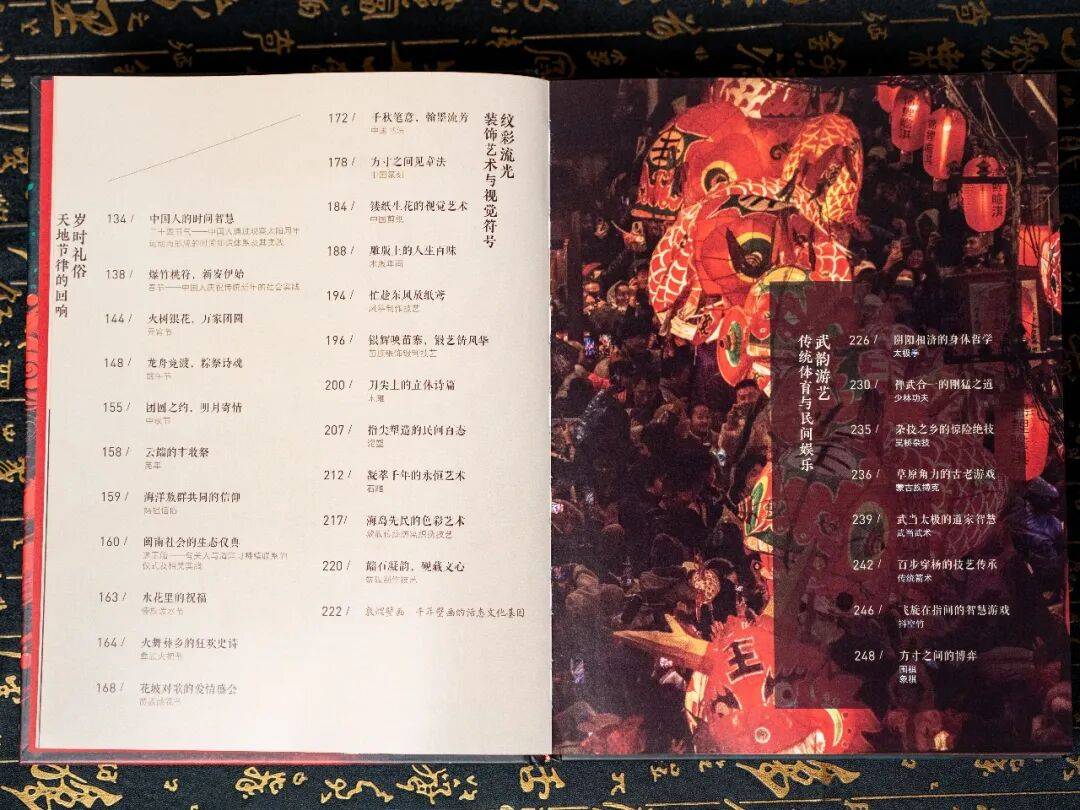 岁时礼俗
天地节律的回响
134 / 中国人的时间智慧
二十四节气——中国人通过观察太阳周年
运动而形成的时间知识体系及其实践
138 / 爆竹桃符，新岁伊始
春节——中国人庆祝传统新年的社会实践
144 / 火树银花，万家团圆
元宵节
148 / 龙舟竞渡，粽祭诗魂
端午节
155 / 团圆之约，明月寄情
中秋节
158 / 云端的丰收祭
159 / 海洋族群共同的信仰
妈祖信俗
160 / 闽南社会的生态仪典
送王船——有关人与海洋可持续联系的
仪式及相关实践
163 / 水花里的祝福
傣族泼水节
164 / 火舞彝乡的狂欢史诗
彝族火把节
168 / 花坡对歌的爱情盛会
纹彩流光
装饰艺术与视觉符号
172 / 千秋笔意，翰墨流芳
中国书法
178 / 方寸之间见章法
中国篆刻
184 / 镂纸生花的视觉艺术
中国剪纸
188 / 雕版上的人生百味
木版年画
194 / 忙趁东风放纸鸢
风筝制作技艺
196 / 银辉映苗寨，锻艺铸风华
苗族银饰锻制技艺
200 / 刀尖上的立体诗篇
木雕
207 / 指尖塑造的民间百态
泥塑
212 / 凝萃千年的永恒艺术
石雕
217/ 海岛先民的色彩艺术
黎族传统纺染织绣技艺
220 / 端石凝韵，砚藏文心
端砚制作技艺
222 / 敦煌壁画 千年壁画的活态文化基因
武韵游艺
传统体育与民间娱乐
226 / 阴阳相济的身体哲学
太极拳
230 / 禅武合一的刚猛之道
少林功夫
235 / 杂技之乡的惊险绝技
吴桥杂技
236 / 草原角力的古老游戏
蒙古族搏克
239 / 武当太极的道家智慧
武当武术
242 / 百步穿杨的技艺传承
传统箭术
246 / 飞旋在指间的智慧游戏
抖空竹
248 / 方寸之间的博弈
围棋
象棋
王